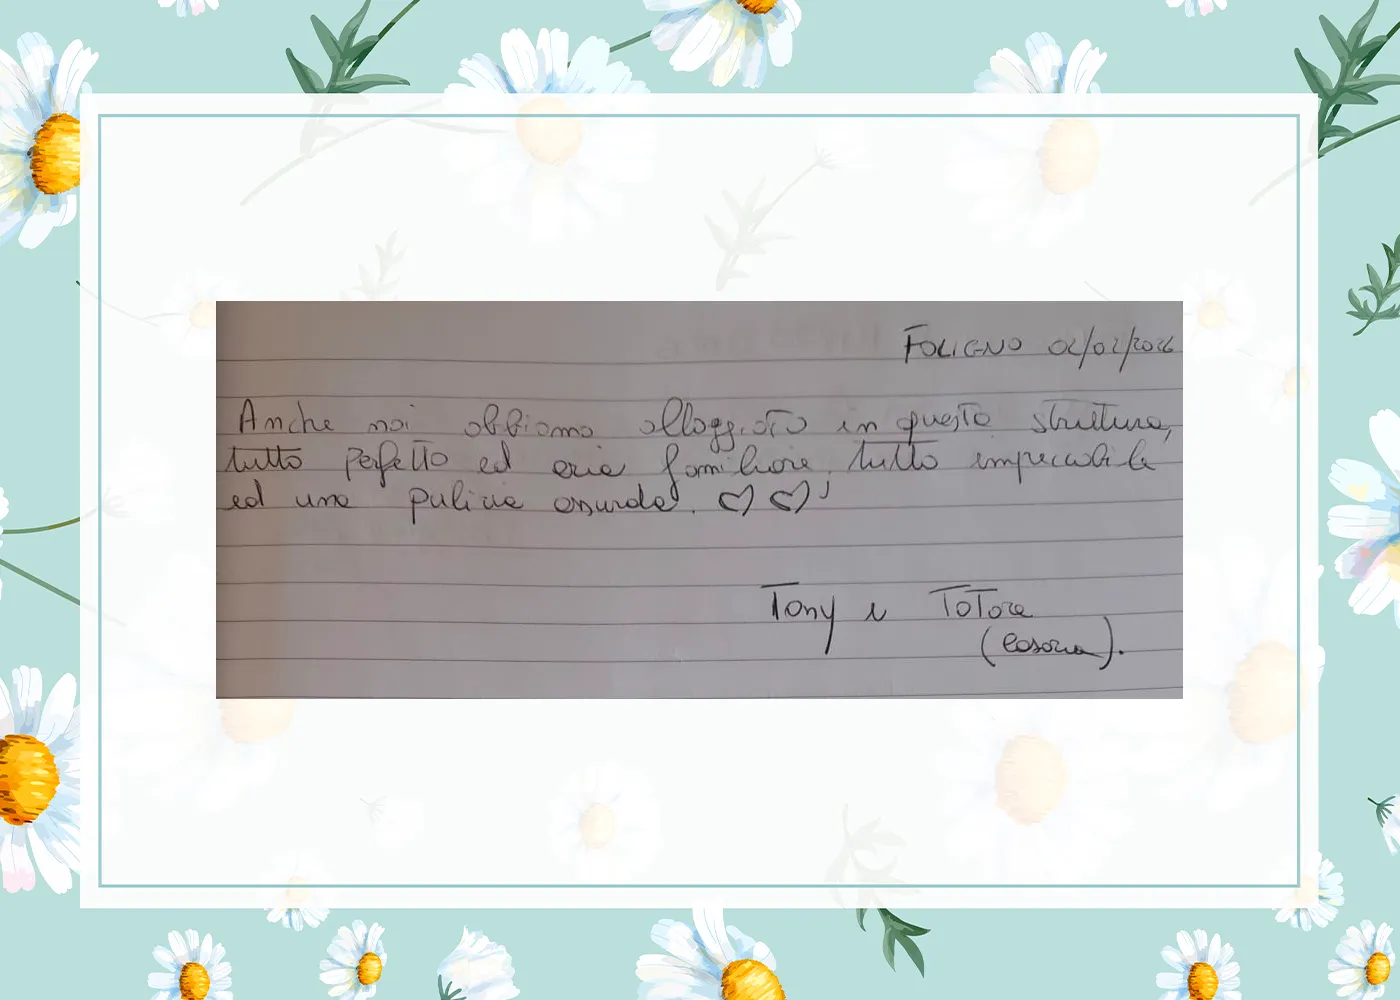 FOLIGNO 02/02/2026
Anche noi abbiamo alloggiato in questa struttura,
tutto perfetto ed aria familiare, tutto impeccabile
ed una pulizia assurda. ♡♡
Tony e
(Casoria).